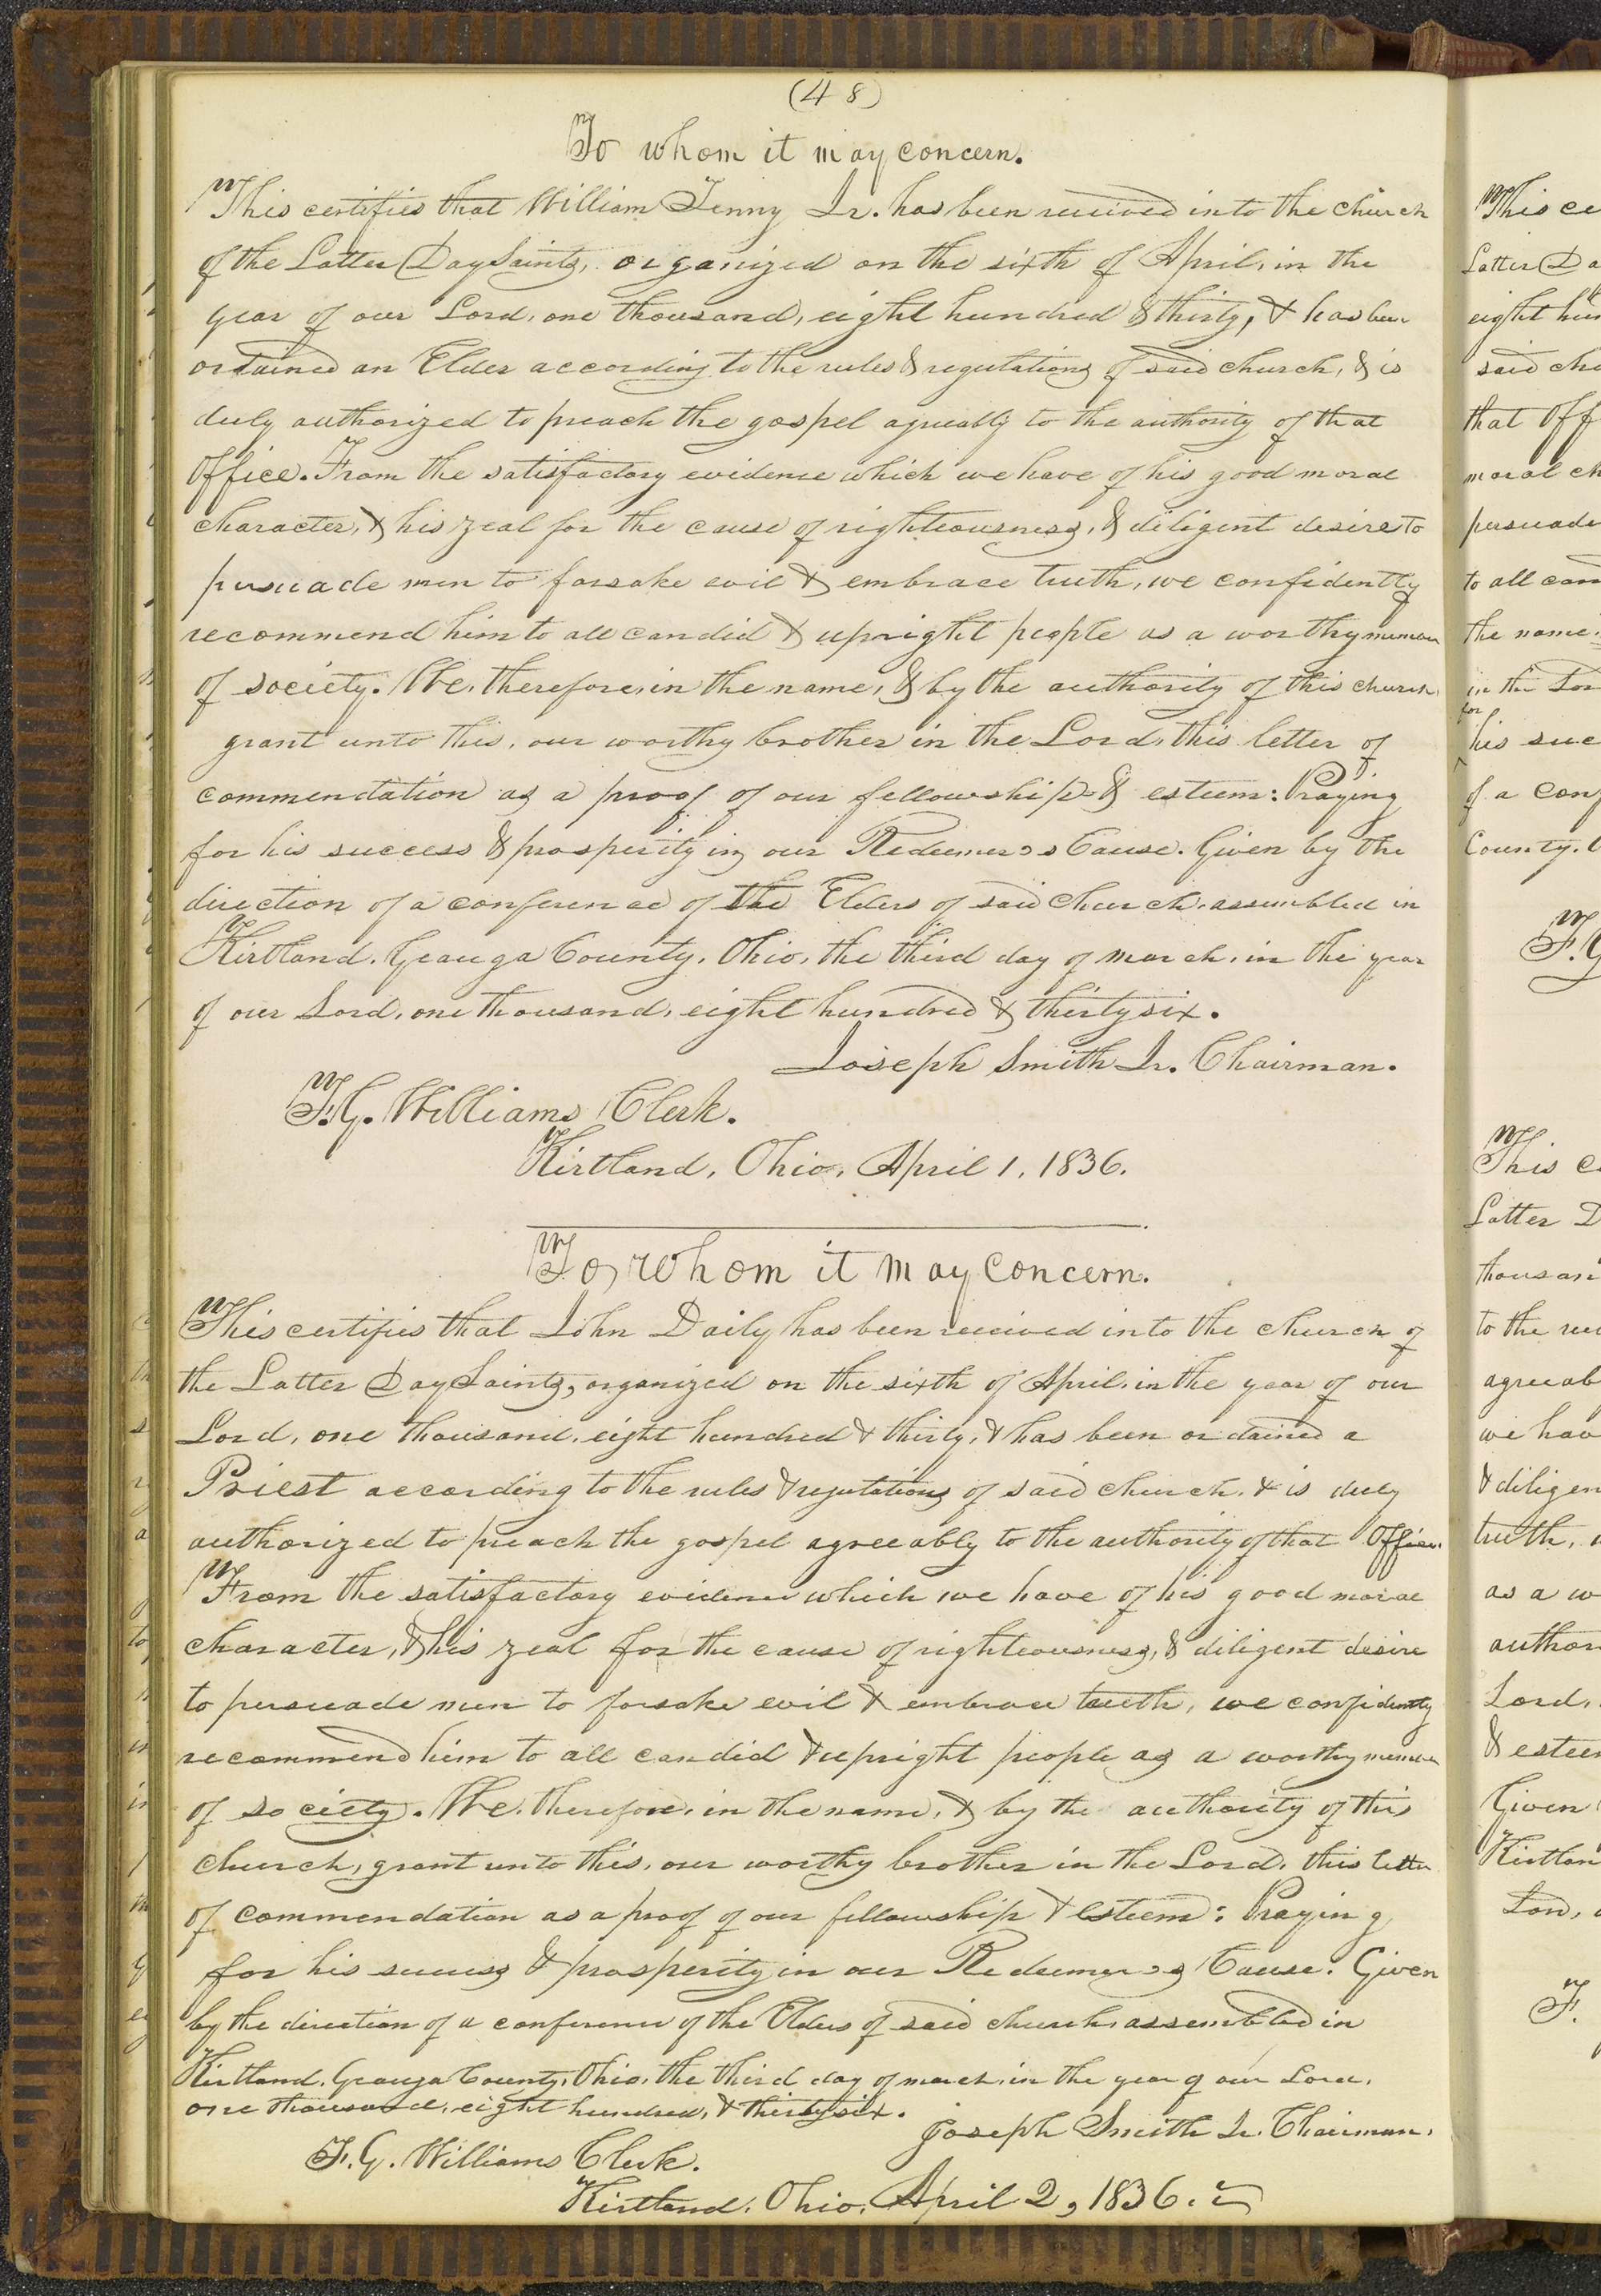 (48)
To whom it may concern.
This certifies that William Tenny Jr. has been received into the church
of the Latter Day Saints, organized on the sixth of April, in the
year of our Lord, one thousand, eight hundred & thirty, & has been
ordained an Elder according to the rules & regulations of said church, & is
duly authorized to preach the gospel agreeably to the authority of that
Office. From the satisfactory evidence which we have of his good moral
character, & his zeal for the cause of righteousness, & diligent desire to
persuade men to forsake evil & embrace truth, we confidently
recommend him to all candid & upright people as a worthy member
of society. We, therefore, in the name, & by the authority of this church
grant unto this, our worthy brother in the Lord, this letter of
commendation as a proof of our fellowship & esteem: Praying
for his success & prosperity in our Redeemer's Cause. Given by the
direction of a conference of the Elders of said church, assembled in
Kirtland, Geauga County, Ohio, the third day of march, in the year
of our Lord, one thousand, eight hundred & thirty six.
Joseph Smith Jr. Chairman.
F. G. Williams Clerk.
Kirtland, Ohio, April 1, 1836.
To whom it may concern.
This certifies that John Daily has been received into the church of
the Latter Day Saints, organized on the sixth of April, in the year of our
Lord, one thousand, eight hundred & thirty, & has been ordained a
Priest according to the rules & regulations of said church, & is duly
authorized to preach the gospel agreeably to the authority of that Office.
From the satisfactory evidence which we have of his good moral
character, & his zeal for the cause of righteousness, & diligent desire
to persuade men to forsake evil & embrace truth, we confidently
recommend him to all candid & upright people as a worthy member
of society. We, therefore, in the name, & by the authority of this
church, grant unto this, our worthy brother in the Lord, this letter
of commendation as a proof of our fellowship & esteem: Praying
for his success & prosperity in our Redeemer's Cause. Given
by the direction of a conference of the Elders of said church, assembled in
Kirtland, Geauga County, Ohio, the third day of march, in the year of our Lord,
one thousand, eight hundred, & thirty six.
Joseph Smith Jr. Chairman.
F. G. Williams Clerk.
Kirtland, Ohio, April 2, 1836.
This ce
Latter Da
eight hun
said chu
that Off
moral ch
persuade
to all can
the name
in the Lor
for
his suc
of a conf
County, O
F. G
This ce
Latter D
thousan
to the ru
agreeab
we hav
& diligen
truth,
as a w
author
Lord,
& esteem
Given
Kirtlan
Lord,
F.